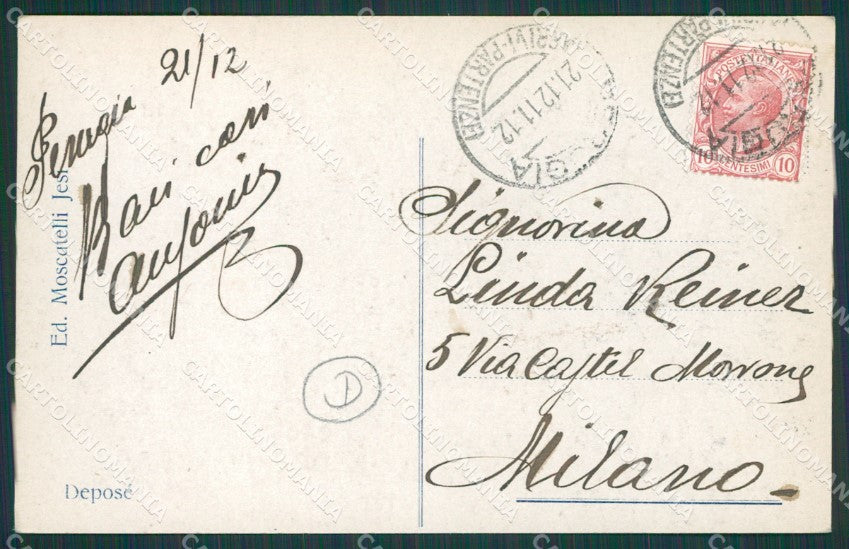 Perugia
21/12
Bari cari
Antonia
Ed. Moscatelli Jesi
Deposé
21.12 11.12
POSTE ITALIANE
10 CENTESIMI 10
Signorina
Linda Reiner
5 Via Castel Morrone
Milano
CARTOLINOMANIA